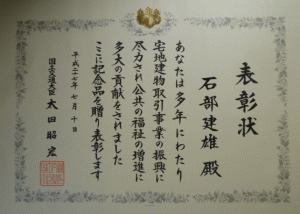 表彰状
石部建雄 殿
あなたは多年にわたり
宅地建物取引事業の振興に
尽力され公共の福祉の増進に
多大の貢献をされました
ここに記念品を贈り表彰します
平成二十七年七月十日
国土交通大臣
太田昭宏